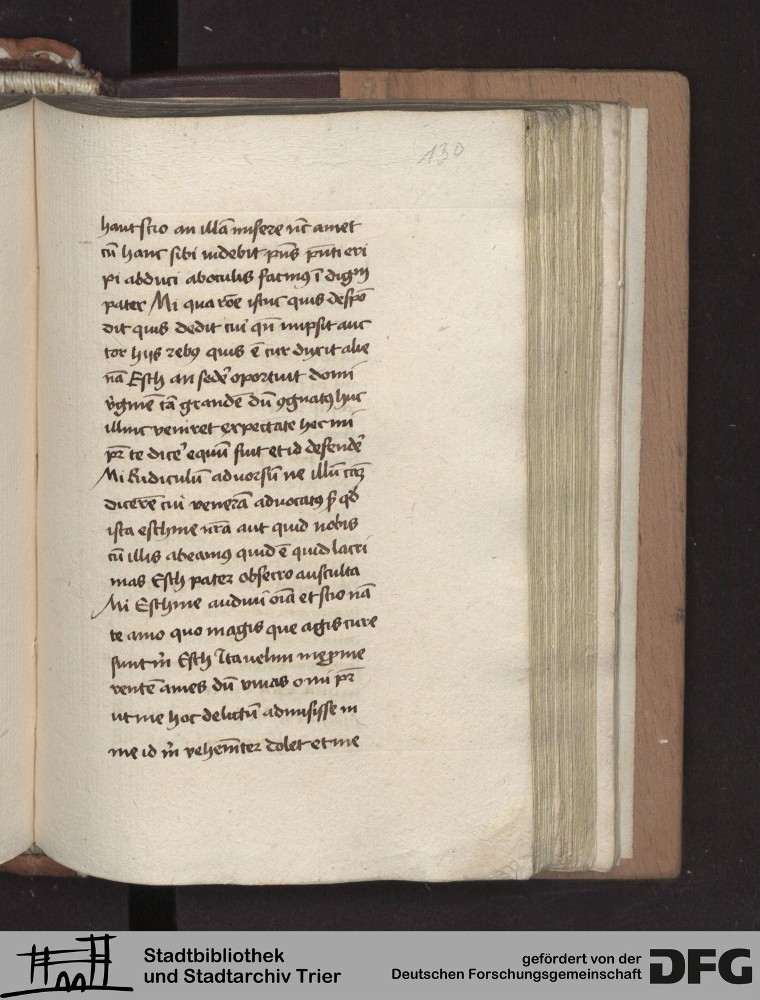 130
haut scio an illā misere nūc amet
cū hanc sibi videbit p̄ns p̄nti eri
pi abduci aboculis facinꝰ ī dignū
pater Mi qua rōe istuc quis despō
dit quis dedit cui qn̄ nupsit auc
tor hijs rebꝰ quis ē cur duxit alie
nā Esch an sedeʾ oportuit domi
v̓ginē tā grandē dū ꝯgnatꝰ huc
illinc veniret expectate hec mi
pr̄ te diceʾ equū fuit et id defendeʾ
Mi Ridiculū advorsū ne illū
dicerē cui venerā advocatꝰ ꝑ qd̄
ista eschine nr̄a aut quid nobis
cū illis abeamꝰ quid ē quid lacri
mas Esch pater obsecro ausculta
Mi Eschine audivi oīa et scio nā
te amo quo magis que agis cure
sunt m̄ Esch Ita velim me ꝓme
rentē ames dū vivas o mi pr̄
ut me hoc delictū admisisse in
me id m̄ vehemēter dolet et me
Stadtbibliothek
und Stadtarchiv Trier
gefördert von der
Deutschen Forschungsgemeinschaft
DFG